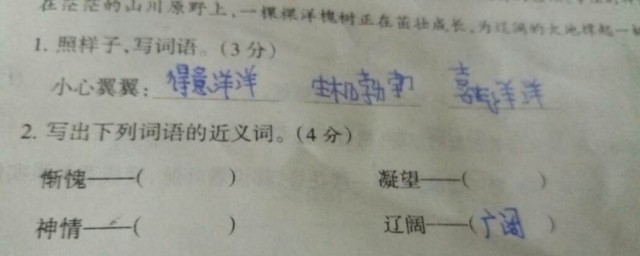 在茫茫的山川原野上,一棵棵洋槐树正在茁壮成长,为辽阔的大地撑起一
1. 照样子,写词语。(3分)
小心翼翼: 得意洋洋 生机勃勃 喜气洋洋
2. 写出下列词语的近义词。(4分)
惭愧——( ) 凝望——( )
神情——( ) 辽阔——(广阔)